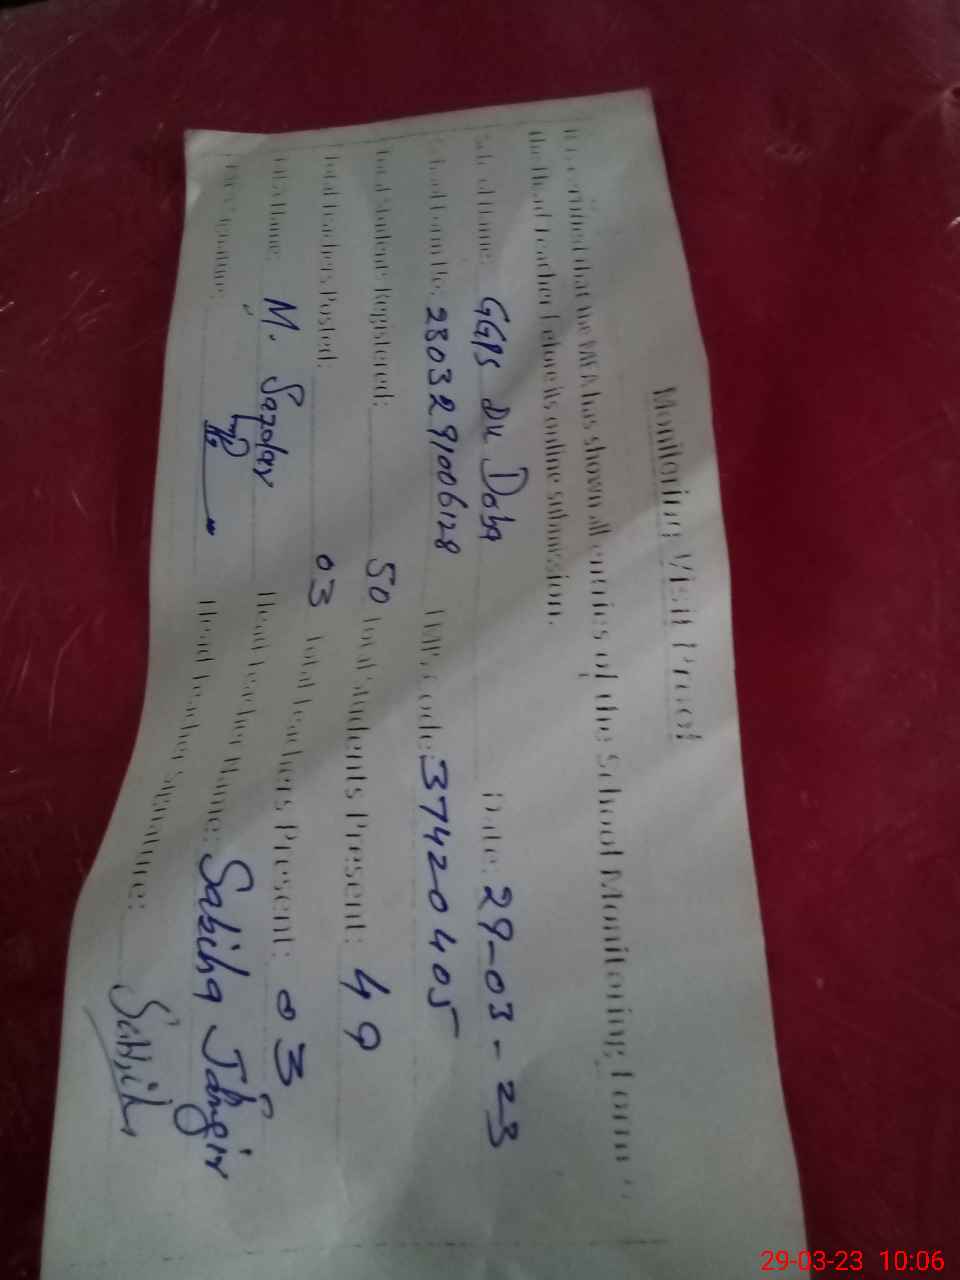 Monitoring Visit Proof
It is certified that the has shown all entries of the School Monitoring Form
the Head Teacher before its online submission.
School Name: GGPS Du Doba Date: 29-03-23
School 2803291006128 Code: 37420405
Total Student Registered: 50 Total Students Present: 49
Total Teachers Posted: 03 Total Teachers Present: 03
Name: M. Head Teacher Name: Sabiha
Signature: Head Teacher Signature: Sabiha
29-03-23 10:06